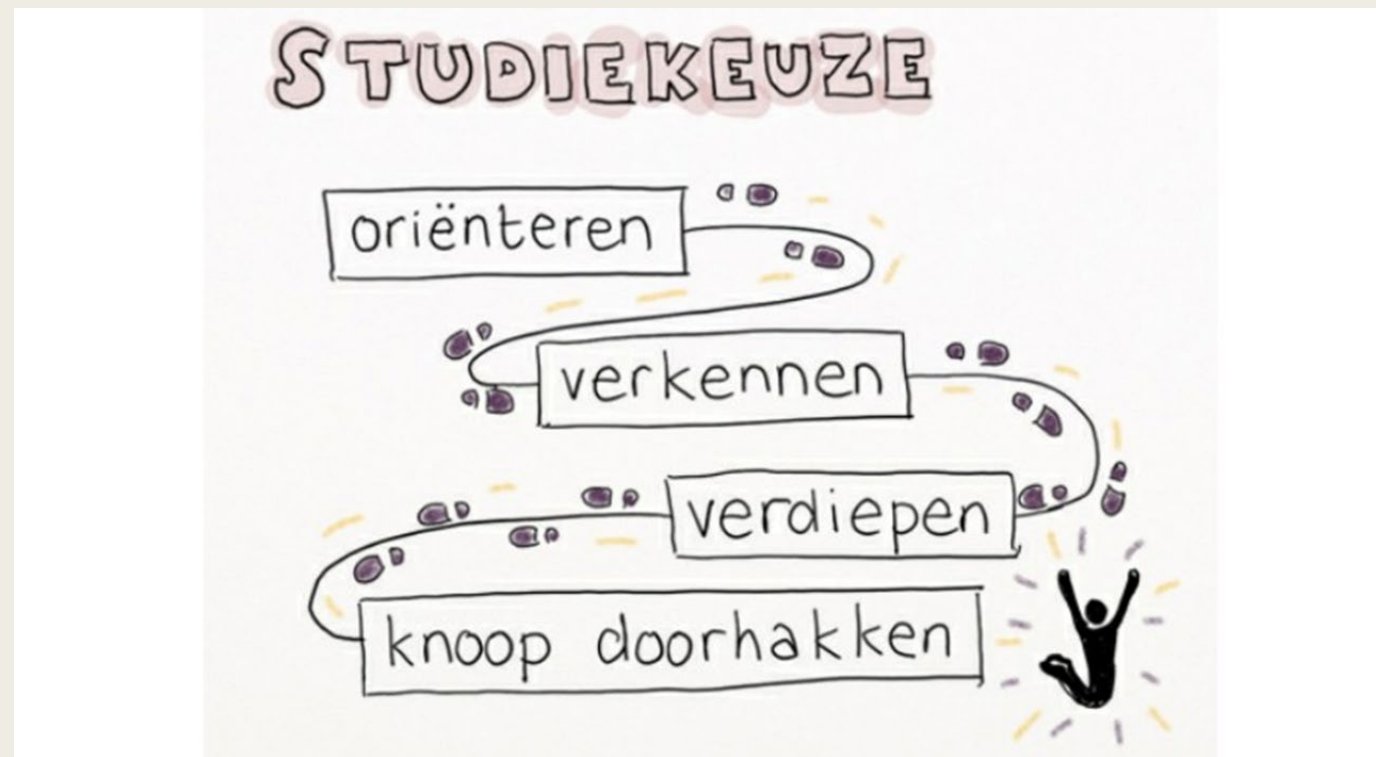 STUDIEKEUZE
oriënteren
verkennen
verdiepen
knoop doorhakken